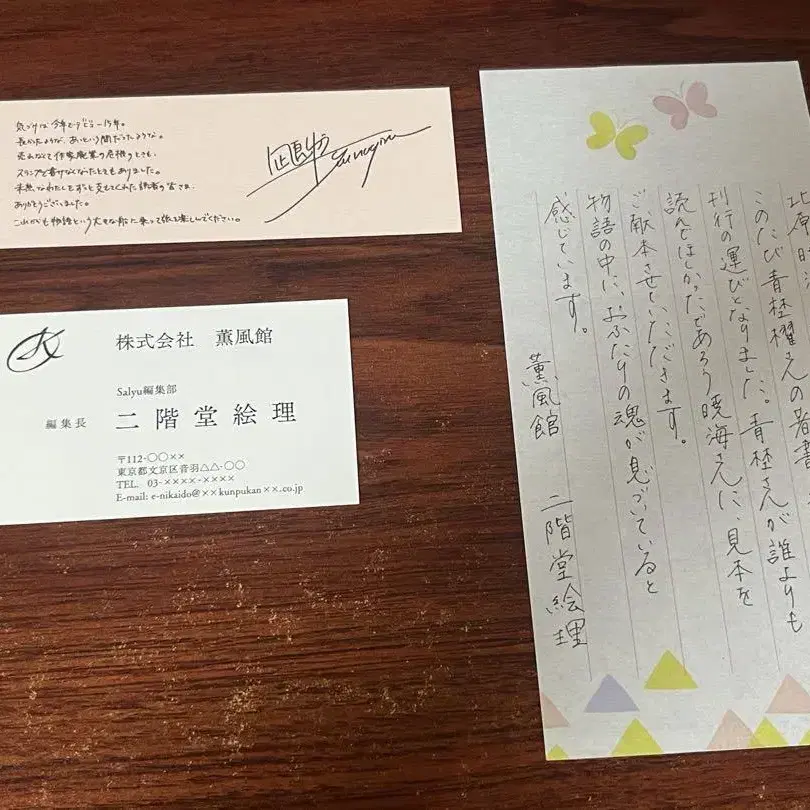 気づけば今年でデビュー15年。
長かったような、あっという間だったような。
売れなくて作家廃業の危機のときも、
スランプで書けなくなったときもありました。
未熟なわたしをずっと支えてくれた読者の皆さま、
ありがとうございました。
これからも物語という大きな船に乗って旅を楽しんでください。
K
株式会社 薫風館
Salyu編集部
編集長 二階堂絵理
〒112-○○××
東京都文京区音羽△△-○○
TEL. 03-××××-××××
E-mail: e-nikaido@××kunpukan××.co.jp
北原暁海
このたび青埜櫂さんの著書
刊行の運びとなりました。青埜さんが誰よりも
読んでほしかったであろう暁海さんに、見本を
ご献本させていただきます。
物語の中に、おふたりの魂が息づいていると
感じています。
薫風館 二階堂絵理